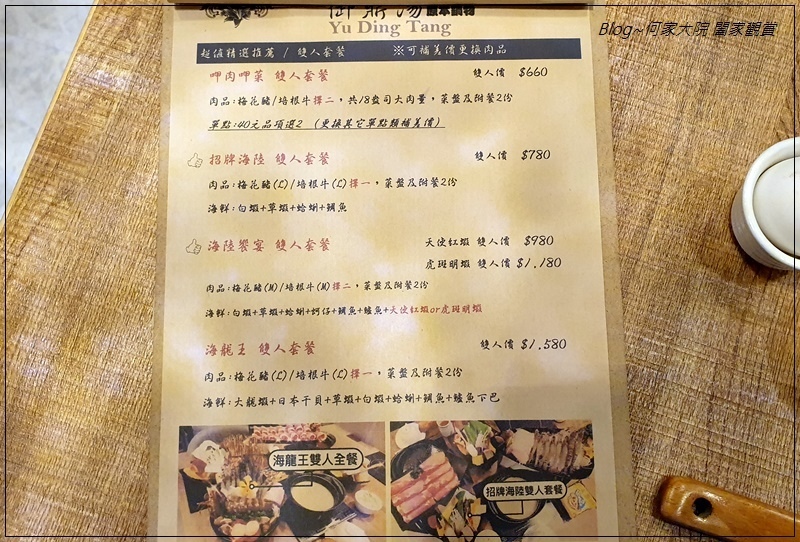 Blog~何家大院 闔家觀賞
御鼎湯
Yu Ding Tang
超值精選推薦 / 雙人套餐 ※可補差價更換肉品
呷肉呷菜 雙人套餐 雙人價 $660
肉品:梅花豬/培根牛擇二，共18盎司大肉量，菜盤及附餐2份
單點:40元品項選2 (更換其它單點類補差價)
招牌海陸 雙人套餐 雙人價 $780
肉品:梅花豬(L)/培根牛(L)擇一，菜盤及附餐2份
海鮮:白蝦+草蝦+蛤蜊+鯛魚
海陸饗宴 雙人套餐 天使紅蝦 雙人價 $980
虎斑明蝦 雙人價 $1.180
肉品:梅花豬(M)/培根牛(M)擇二，菜盤及附餐2份
海鮮:白蝦+草蝦+蛤蜊+蚵仔+鯛魚+鱸魚+天使紅蝦or虎斑明蝦
海龍王 雙人套餐 雙人價 $1.580
肉品:梅花豬(L)/培根牛(L)擇一，菜盤及附餐2份
海鮮:大龍蝦+日本干貝+草蝦+白蝦+蛤蜊+鯛魚+鱸魚下巴
海龍王雙人全餐
招牌海陸雙人套餐